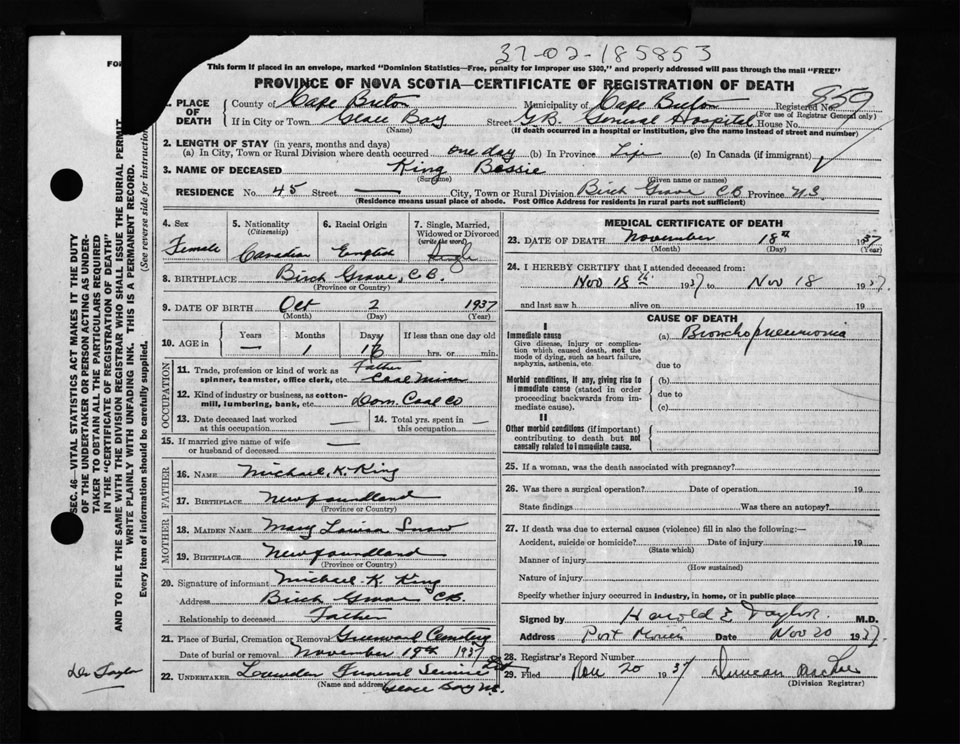 37-02-185853
This form if placed in an envelope, marked "Dominion Statistics—Free, penalty for improper use $300," and properly addressed will pass through the mail "FREE"
PROVINCE OF NOVA SCOTIA—CERTIFICATE OF REGISTRATION OF DEATH
FOR
1. PLACE OF DEATH
County of Cape Breton Municipality of Cape Breton Registered No. 859
(For use of Registrar General only)
If in City or Town Glace Bay Street G.B. General Hospital House No.
(Name) (If death occurred in a hospital or institution, give the name instead of street and number)
2. LENGTH OF STAY (in years, months and days)
(a) In City, Town or Rural Division where death occurred one day (b) In Province Life (c) In Canada (if immigrant)
3. NAME OF DECEASED King Bessie
(Surname) (Given name or names)
RESIDENCE No. 45 Street — City, Town or Rural Division Birch Grove C.B. Province N.S
(Residence means usual place of abode. Post Office Address for residents in rural parts not sufficient)
4. Sex Female
5. Nationality (Citizenship) Canadian
6. Racial Origin English
7. Single, Married, Widowed or Divorced (write the word) Single
8. BIRTHPLACE Birch Grove, C.B.
(Province or Country)
9. DATE OF BIRTH Oct 2 1937
(Month) (Day) (Year)
10. AGE in Years Months Days If less than one day old
— 1 16 hrs. or min.
OCCUPATION
11. Trade, profession or kind of work as spinner, teamster, office clerk, etc. Father Coal Miner
12. Kind of industry or business, as cotton-mill, lumbering, bank, etc. Dom. Coal Co
13. Date deceased last worked at this occupation —
14. Total yrs. spent in this occupation —
15. If married give name of wife or husband of deceased —
FATHER
16. NAME Michael. K. King
17. BIRTHPLACE Newfoundland
(Province or Country)
MOTHER
18. MAIDEN NAME Mary Louisa Snow
19. BIRTHPLACE Newfoundland
(Province or Country)
20. Signature of informant Michael. K. King
Address Birch Grove C.B.
Relationship to deceased Father
21. Place of Burial, Cremation or Removal Greenwood Cemetery
Date of burial or removal November 19th 1937
22. UNDERTAKER Funeral Service Ltd
(Name and address) Glace Bay N.S.
MEDICAL CERTIFICATE OF DEATH
23. DATE OF DEATH November 18th 1937
(Month) (Day) (Year)
24. I HEREBY CERTIFY that I attended deceased from:
Nov 18th 1937 to Nov 18 1937.
and last saw h alive on 19
CAUSE OF DEATH
I
Immediate cause (a) Bronchopneumonia
Give disease, injury or complication which caused death, not the mode of dying, such as heart failure, asphyxia, asthenia, etc
due to
Morbid conditions, if any, giving rise to immediate cause (stated in order proceeding backwards from immediate cause).
(b)
due to
(c)
II
Other morbid conditions (if important) contributing to death but not causally related to immediate cause.
25. If a woman, was the death associated with pregnancy?
26. Was there a surgical operation? Date of operation 19
State findings Was there an autopsy?
27. If death was due to external causes (violence) fill in also the following:—
Accident, suicide or homicide? Date of injury 19
(State which)
Manner of injury
(How sustained)
Nature of injury
Specify whether injury occurred in industry, in home, or in public place
Signed by Harold E Taylor M.D.
Address Port Morien Date Nov 20 1937.
28. Registrar's Record Number
29. Filed Nov 20 1937 Duncan
(Division Registrar)
SEC. 46—VITAL STATISTICS ACT MAKES IT THE DUTY
OF THE UNDERTAKER OR PERSON ACTING AS UNDER-
TAKER TO OBTAIN ALL THE PARTICULARS REQUIRED
IN THE "CERTIFICATE OF REGISTRATION OF DEATH"
AND TO FILE THE SAME WITH THE DIVISION REGISTRAR WHO SHALL ISSUE THE BURIAL PERMIT
WRITE PLAINLY WITH UNFADING INK. THIS IS A PERMANENT RECORD.
Every item of information should be carefully supplied. (See reverse side for instruction
Dr Taylor